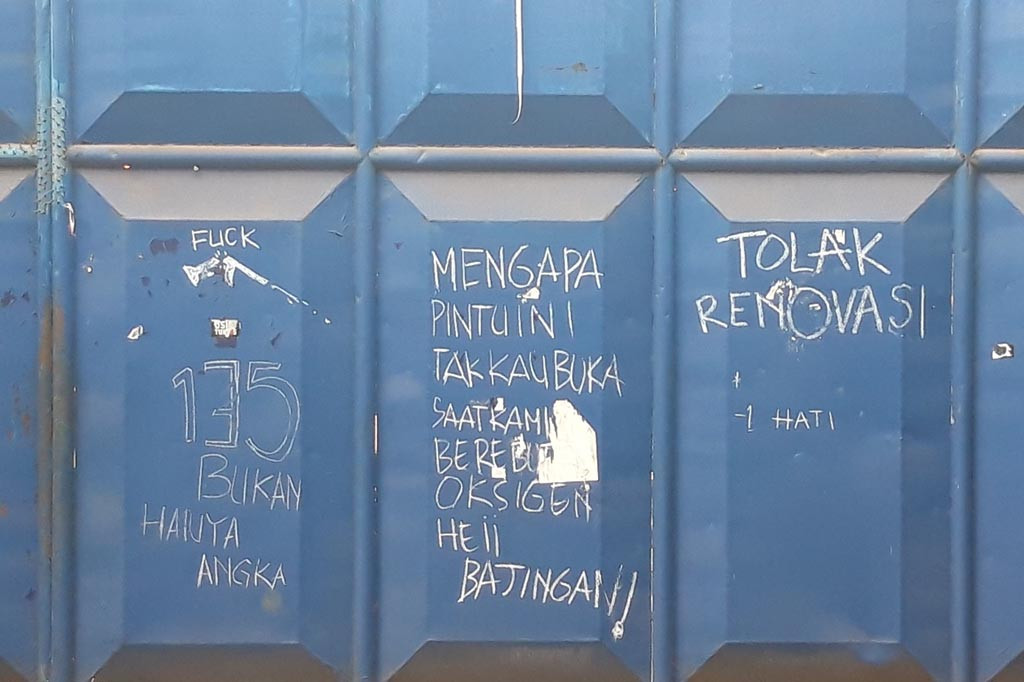 FUCK
135
BUKAN
HANYA
ANGKA
MENGAPA
PINTU INI
TAK KAU BUKA
SAAT KAMI
BEREBUT
OKSIGEN
HEII
BAJINGAN//
TOLAK
RENOVASI
-1 HATI